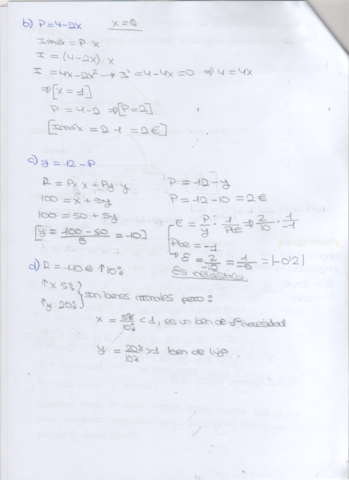 b) P=4-2X   X=Q
Imáx = P · X
I = (4-2X) · X
I = 4X-2X² → I' = 4-4X=0 ⇒ 4=4X
⇒ [X=1]
P = 4-2 ⇒ [P=2]
[Imáx = 2·1 = 2€]
c) y=12-P
R = Px·X + Py·y
100 = X+5y
100 = 50+5y
[y = 100-50/5 = 10]
P = 12-y
P = 12-10 = 2€
E = P/y · 1/Pte ⇒ 2/10 · 1/-1
Pte = -1
Es inelástica
d) R = 110€ ↑10%
↑X 5%
↑y 20%
son bienes normales pero:
X = 5%/10% <1, es un bien de 1ª necesidad
y = 20%/10% >1 bien de lujo.